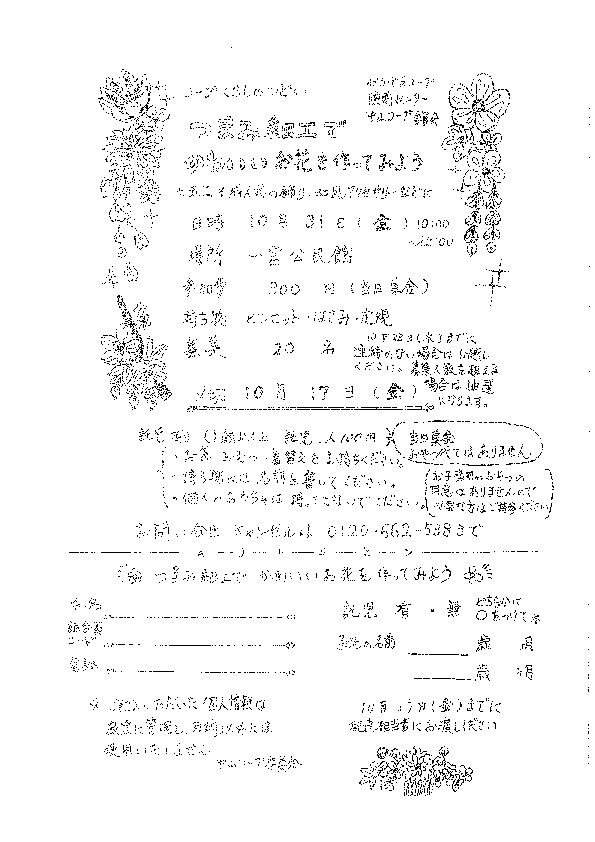 コープくらしのつどい
つまみ細工で
かわいいお花を作ってみよう
日時 10月31日(金) 10:00
~12:00
場所 一宮公民館
参加費 300円(当日集金)
持ち物 ピンセット・はさみ・定規
募集 20名
10月22日(水)までに
連絡がない場合はお越し
ください。募集人数を超える
場合は抽選
となります。
〆切 10月17日(金)
託児 有 (1歳以上 託児一人100円)
当日集金
おやつ代ではありません
・お茶 おむつ 着替えをお持ちください。
・持ち物には名前を書してください。
・個人のおもちゃは持ってこないでください。
お子様用のおやつの
用意はありませんので
必要な方はご持参ください
お問い合せ キャンセルは 0120・662・588まで
キリトリセン
つまみ細工で かわいいお花を作ってみよう
氏名
組合員
コード
電話
託児 有・無
どちらかに
○をつけて
お子様の名前
歳 ヶ月
歳 ヶ月
ご記入いただいた個人情報は
厳重に管理し、お約束以外には
使用いたしません
10月17日(金)までに
配達担当者にお渡しください